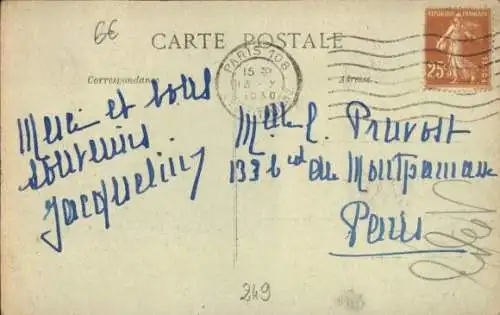 6€
CARTE POSTALE
Correspondance
Adresse
PARIS 108
15 H
1930
REPUBLIQUE FRANÇAISE
25c
Merci et bons
souvenirs
Jacqueline
Melle L. Pruvost
133 bd du Montparnasse
Paris
249